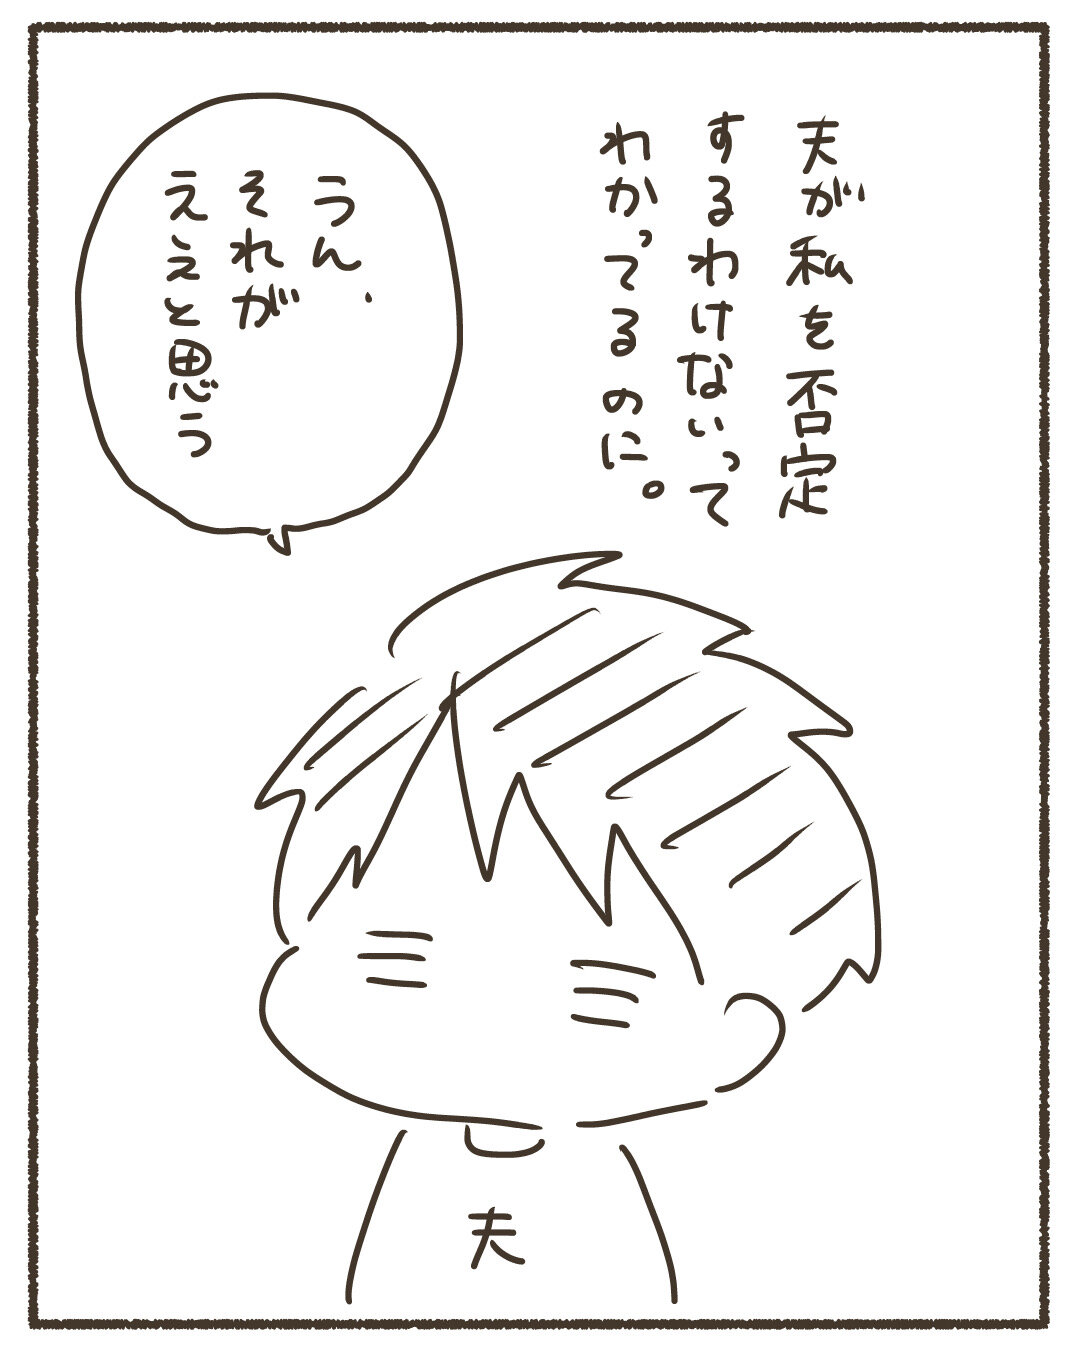 夫が私を否定
するわけないって
わかってるのに。
うん、
それが
ええと思う
夫